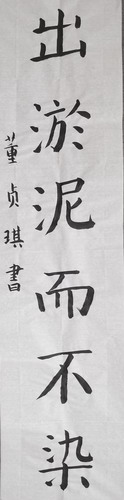 出淤泥而不染
董贞琪書